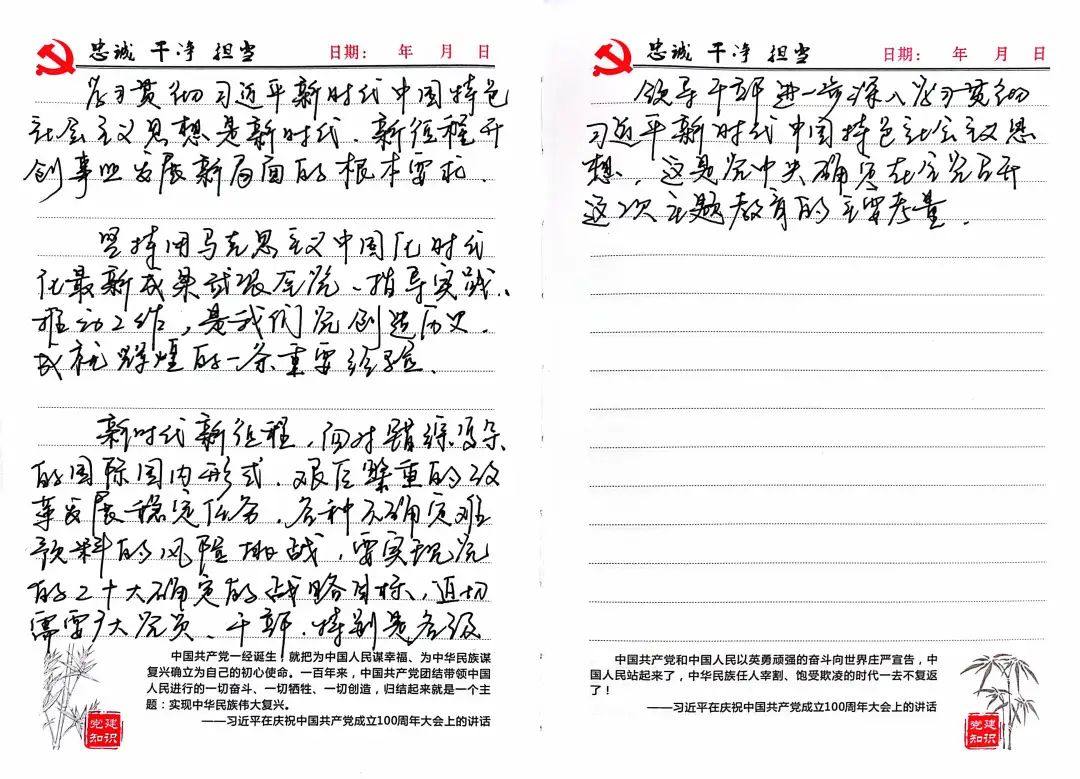 忠诚 干净 担当
日期： 年 月 日
学习贯彻习近平新时代中国特色
社会主义思想是新时代、新征程开
创事业发展新局面的根本要求.
坚持用马克思主义中国化时代
化最新成果武装全党、指导实践、
推动工作，是我们党创造历史、
成就辉煌的一条重要经验.
新时代新征程，面对错综复杂
的国际国内形式、艰巨繁重的改
革发展稳定任务、各种不确定难
预料的风险挑战，要实现党
的二十大确定的战略目标，迫切
需要广大党员、干部，特别是各级
中国共产党一经诞生，就把为中国人民谋幸福、为中华民族谋
复兴确立为自己的初心使命。一百年来，中国共产党团结带领中国
人民进行的一切奋斗、一切牺牲、一切创造，归结起来就是一个主
题：实现中华民族伟大复兴。
——习近平在庆祝中国共产党成立100周年大会上的讲话
党建
知识
忠诚 干净 担当
日期： 年 月 日
领导干部进一步深入学习贯彻
习近平新时代中国特色社会主义思
想，这是党中央确定在全党召开
这次主题教育的主要考量.
中国共产党和中国人民以英勇顽强的奋斗向世界庄严宣告，中
国人民站起来了，中华民族任人宰割、饱受欺凌的时代一去不复返
了！
——习近平在庆祝中国共产党成立100周年大会上的讲话
党建
知识